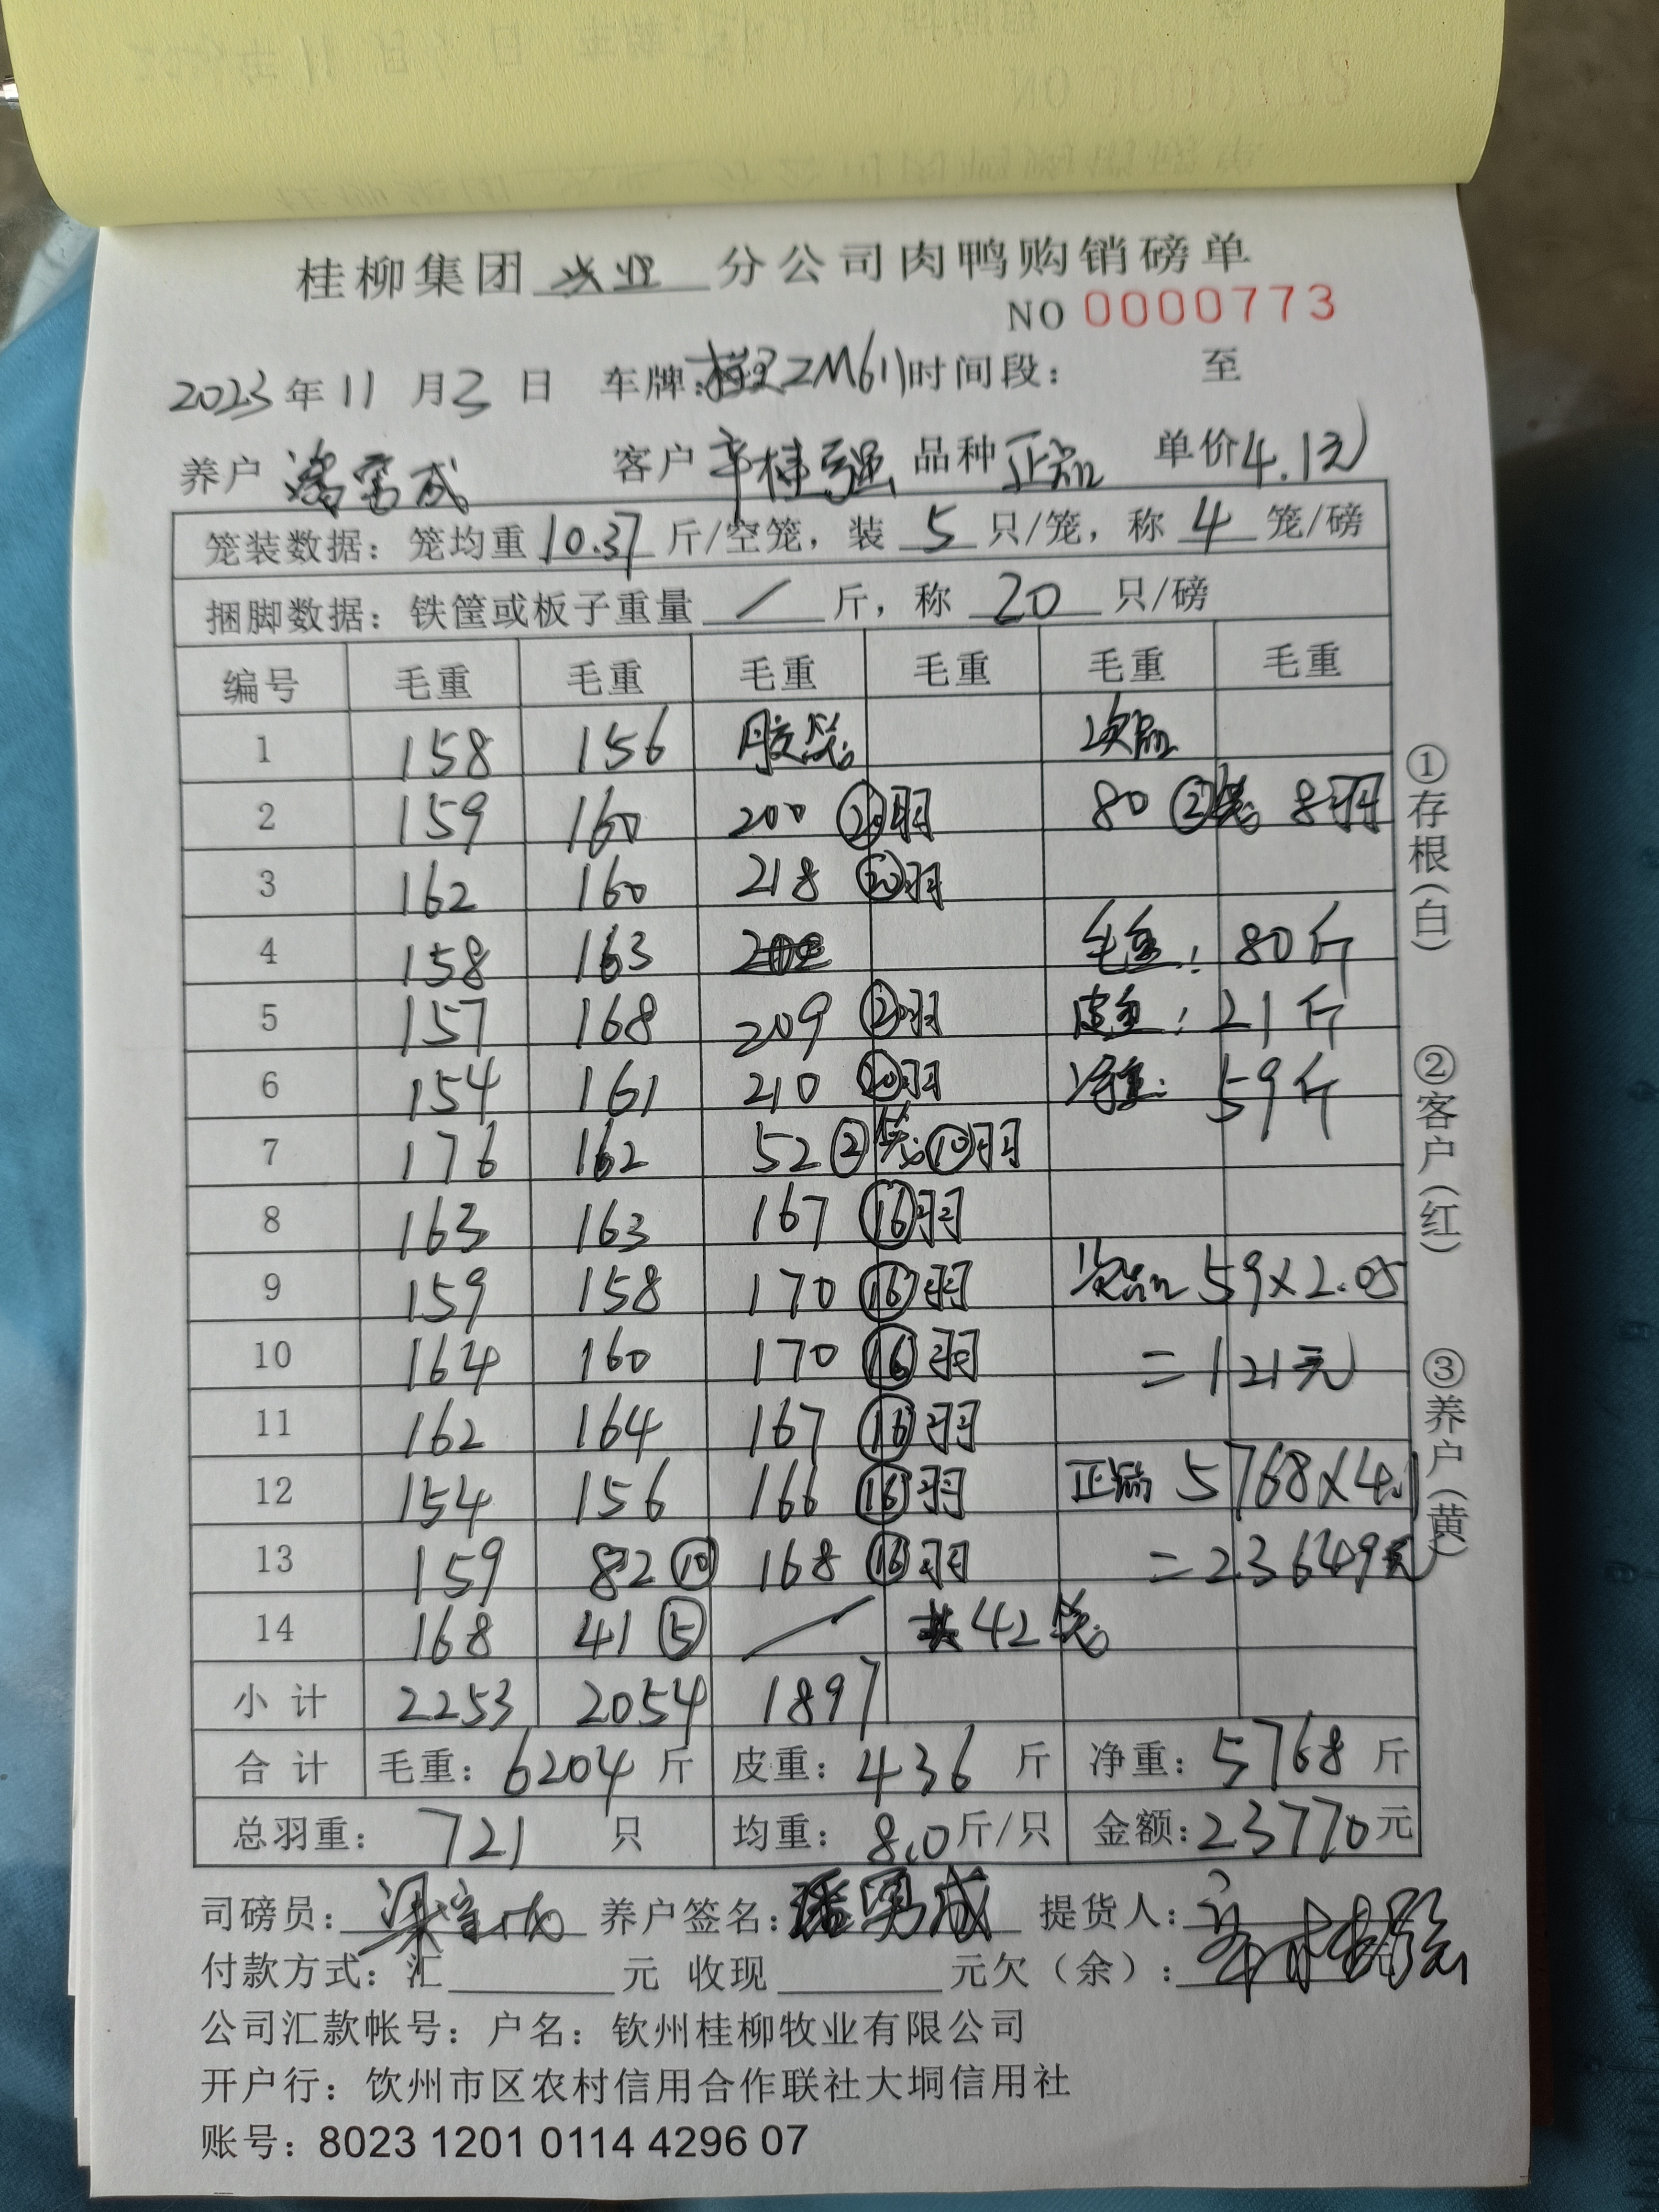 桂柳集团 分公司肉鸭购销磅单
NO 0000773
2023年11月3日 车牌: 2M611 时间段: 至
养户 潘富成 客户 辛桂强 品种 正品 单价 4.1元
笼装数据: 笼均重 10.37 斤/空笼, 装 5 只/笼, 称 4 笼/磅
捆脚数据: 铁筐或板子重量 / 斤, 称 20 只/磅
编号 毛重 毛重 毛重 毛重 毛重 毛重
1 158 156 胶笼 次品
2 159 160 200 ⑳羽 80 ②笼 8羽
3 162 160 218 ⑳羽
4 158 163 毛重: 80斤
5 157 168 209 ⑳羽 皮重: 21斤
6 154 161 210 ⑳羽 净重: 59斤
7 176 162 52 ②笼 ⑩羽
8 163 163 167 ⑯羽
9 159 158 170 ⑯羽 次品 59×2.05
10 164 160 170 ⑯羽 =121元
11 162 164 167 ⑯羽
12 154 156 166 ⑯羽 正品 5768×4.1
13 159 82 ⑩ 168 ⑯羽 =23649元
14 168 41 ⑤ / 共42笼
小计 2253 2054 1897
合计 毛重: 6204 斤 皮重: 436 斤 净重: 5768 斤
总羽重: 721 只 均重: 8.0 斤/只 金额: 23770元
司磅员: 养户签名: 提货人: 辛桂强
付款方式: 汇 元 收现 元欠(余):
公司汇款帐号: 户名: 钦州桂柳牧业有限公司
开户行: 钦州市区农村信用合作联社大垌信用社
账号: 8023 1201 0114 4296 07
①存根(白) ②客户(红) ③养户(黄)